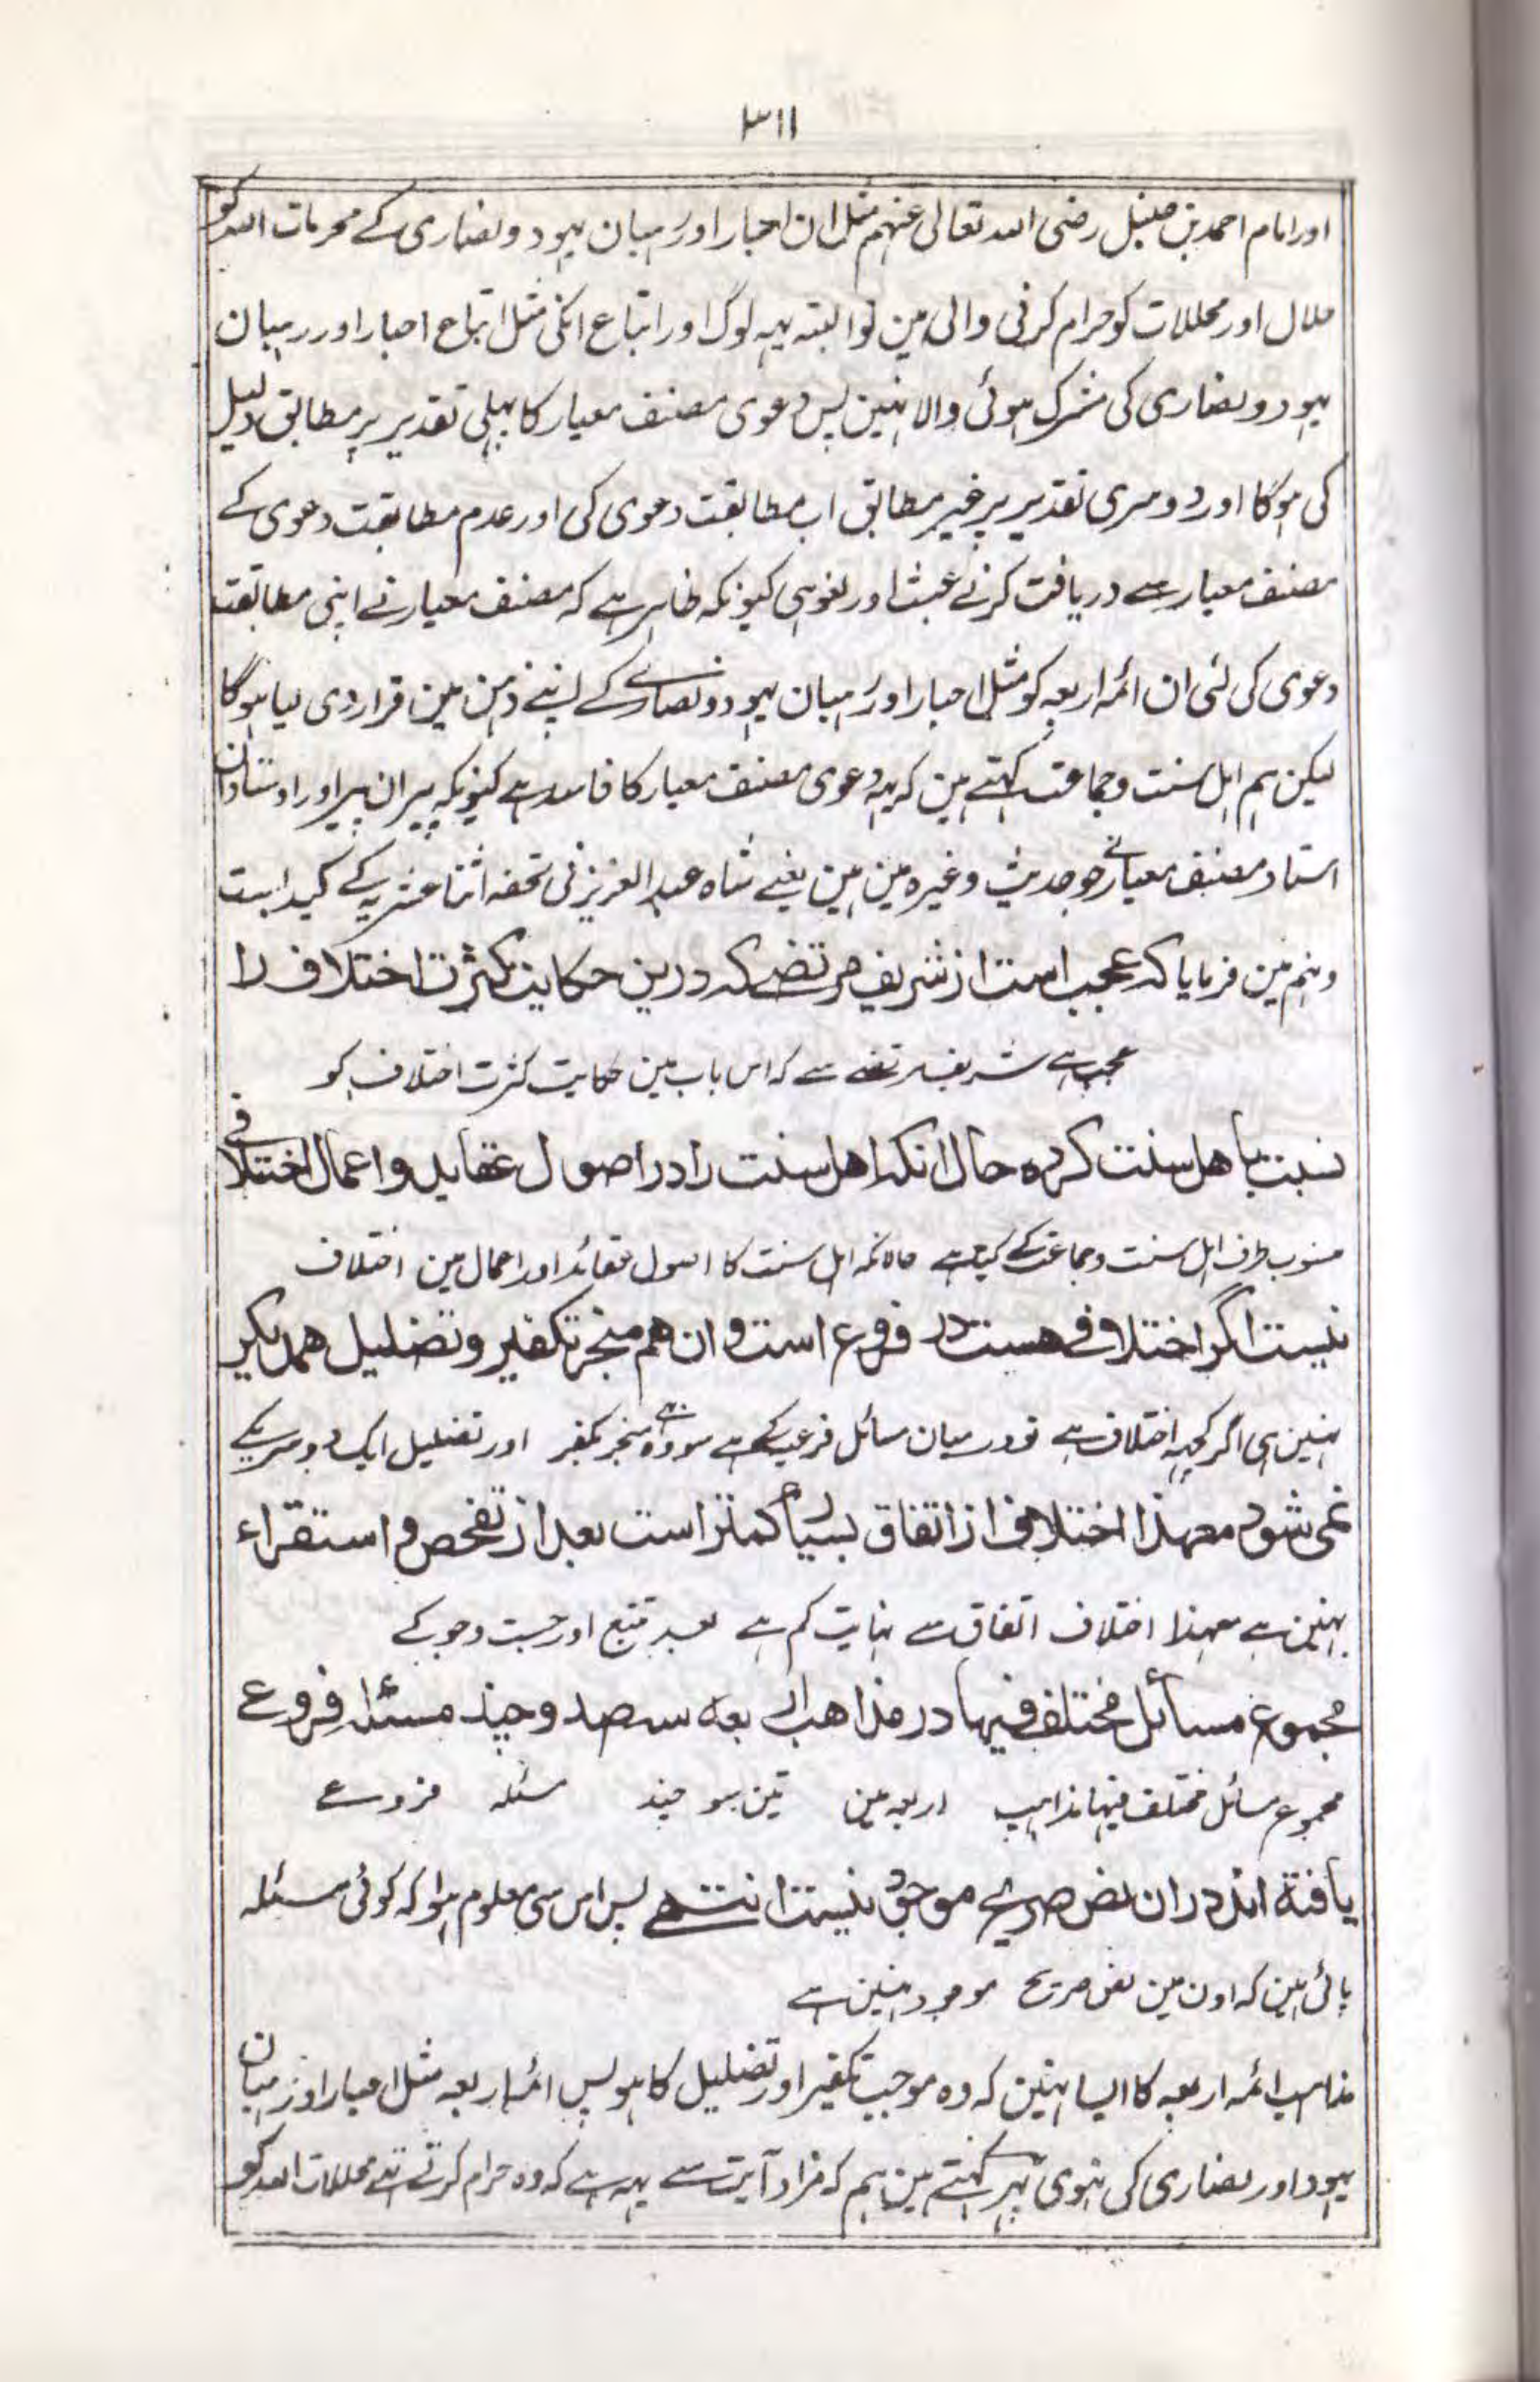 ۳۱۱
اور امام احمد بن حنبل رضی اللہ تعالی عنہم مثل ان احبار اور رہبان یہود و نصاری کے محرمات اللہ کو
حلال اور محللات کو حرام کرنی والی ہین تو البتہ یہہ لوگ اور اتباع انکی مثل اتباع احبار اور رہبان
یہود و نصاری کی مشرک ہوئی والا نہین پس دعوی مصنف معیار کا پہلی تقدیر پر مطابق دلیل
کی ہوگا اور دوسری تقدیر پر غیر مطابق اب مطابقت دعوی کی اور عدم مطابقت دعوی کے
مصنف معیار سے دریافت کرنے عبث اور لغو ہی کیونکہ ظاہر ہے کہ مصنف معیار نے اپنی مطابقت
دعوی کی لئی ان ائمہ اربعہ کو مثل احبار اور رہبان یہود و نصاری کے اپنے ذہن مین قرار دی لیا ہوگا
لیکن ہم اہل سنت وجماعت کہتے ہین کہ یہہ دعوی مصنف معیار کا فاسد ہے کیونکہ پیران پیر اور اوستادان
استاد مصنف معیار نے جو حدیث وغیرہ مین ہین یعنے شاہ عبدالعزیز نی تحفہ اثنا عشریہ کے کید بست
و نہم مین فرمایا کہ عجب است از شریف مرتضے کہ درین حکایت کثرت اختلاف را
عجب ہے شریف مرتضے سے کہ اس باب مین حکایت کثرت اختلاف کو
نسبت باهل سنت کرده حال انکه اهل سنت را در اصول عقاید و اعمال اختلافی
منسوب طرف اہل سنت وجماعت کے کیا ہے حالانکہ اہل سنت کا اصول عقائد اور اعمال مین اختلاف
نیست اگر اختلافی هست در فروع است و ان هم منجر بتکفیر و تضلیل همدیگر
نہین ہی اگر کچہہ اختلاف ہے تو درمیان مسائل فرعیہ کے ہے سو وہ بھی منجر بتکفیر اور تضلیل ایک دوسریکے
نمی شود معهذا اختلاف از اتفاق بسیار کمتر است بعد از تفحص و استقراء
نہین ہے معہذا اختلاف اتفاق سے نہایت کم ہے بعد تتبع اور جست وجو کے
مجموع مسائل مختلف فیها در مذاهب اربعه سه صد و چند مسئله فروعی
مجموع مسائل مختلف فیہا مذاہب اربعہ مین تین سو چند مسئلہ فروعے
یافته اند در ان نص صریح موجود نیست انتهے پس اس سی معلوم ہوا کہ کوئی مسئلہ
پائی ہین کہ اون مین نص صریح موجود نہین ہے
مذاہب ائمہ اربعہ کا ایسا نہین کہ وہ موجب تکفیر اور تضلیل کا ہو پس ائمہ اربعہ مثل احبار اور رہبان
یہود اور نصاری کی نہوی پہر کہتے ہین ہم کہ مراد آیت سے یہہ ہے کہ وہ حرام کرتے تھے محللات اللہ کو